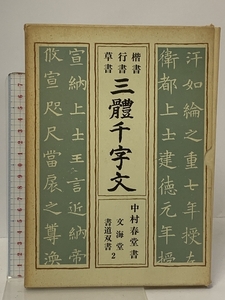 汗如綸之重七年授左
衛都上士建德元年授
楷書
行書
草書
三體千字文
中村春堂書
文海堂
書道双書2
宣納上士王言近納帝
攸宣咫尺當扆之尊渙